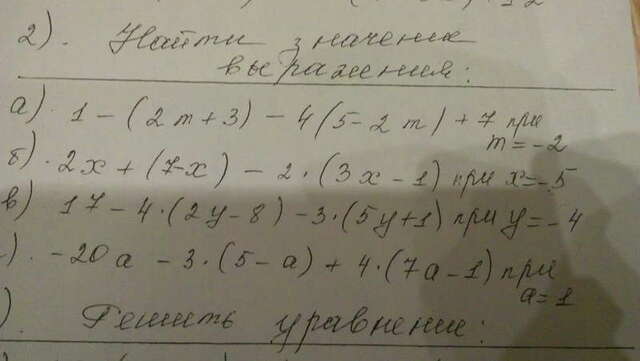 2). Найти значение
выражения:
а). 1 - (2m+3) - 4(5-2m) + 7 при
m = -2
б). 2x + (7-x) - 2·(3x-1) при x=-5
в) 17 - 4·(2y-8) - 3·(5y+1) при y=-4
). -20a - 3·(5-a) + 4·(7a-1) при
a=1
). Решить уравнение: